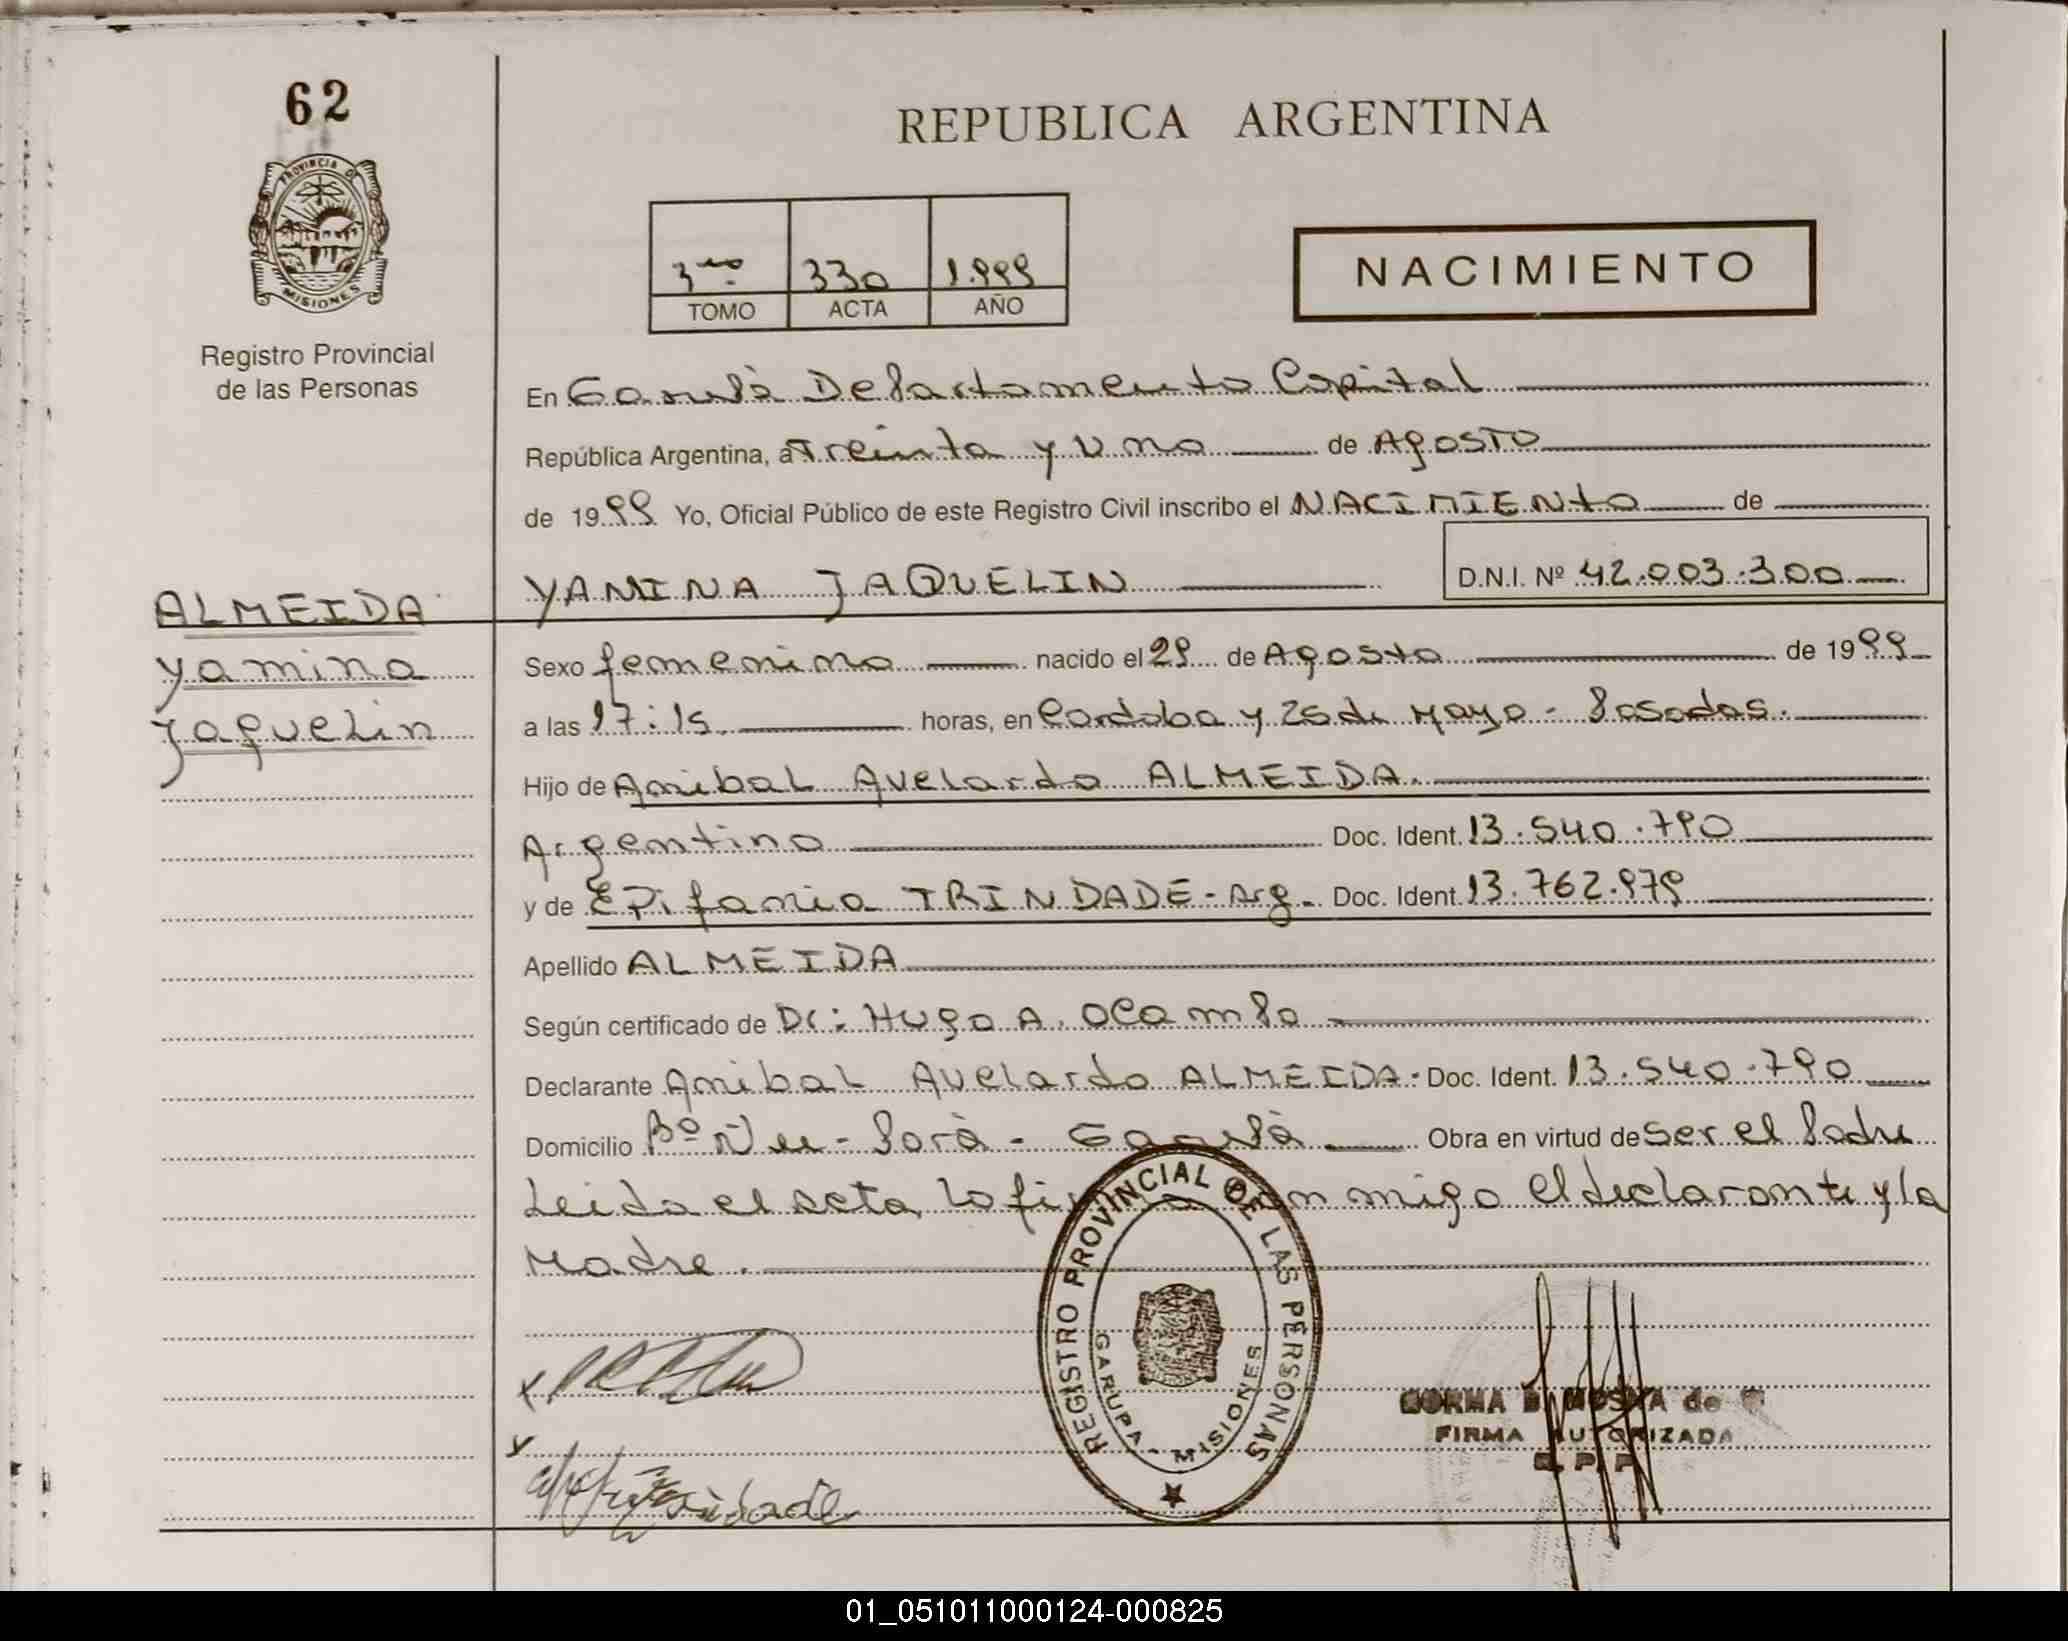 62
PROVINCIA DE
MISIONES
Registro Provincial
de las Personas
REPUBLICA ARGENTINA
3ro 330 1.999
TOMO ACTA AÑO
NACIMIENTO
En Garupà Departamento Capital
República Argentina, a Treinta y Uno de Agosto
de 1999 Yo, Oficial Público de este Registro Civil inscribo el NACIMIENto de
YAMINA JAQUELIN D.N.I. Nº 42.003.300
ALMEIDA
Yamina
Jaquelin
Sexo femenino nacido el 29 de Agosto de 1999
a las 17:15 horas, en Cordoba y 25 de Mayo - Posadas.
Hijo de Anibal Avelardo ALMEIDA.
Argentino Doc. Ident. 13.540.790
y de Epifania TRINDADE - Arg. Doc. Ident. 13.762.979
Apellido ALMEIDA
Según certificado de Dr: Hugo A. Ocampo
Declarante Anibal Avelardo ALMEIDA. Doc. Ident. 13.540.790
Domicilio Bº Ñu - Porà - Garupà Obra en virtud de Ser el Padre
Leida el acta, la firma conmigo el declarante y la
Madre.
REGISTRO PROVINCIAL DE LAS PERSONAS
GARUPA - MISIONES
NORMA de
FIRMA AUTORIZADA
R. P. P.
01_051011000124-000825